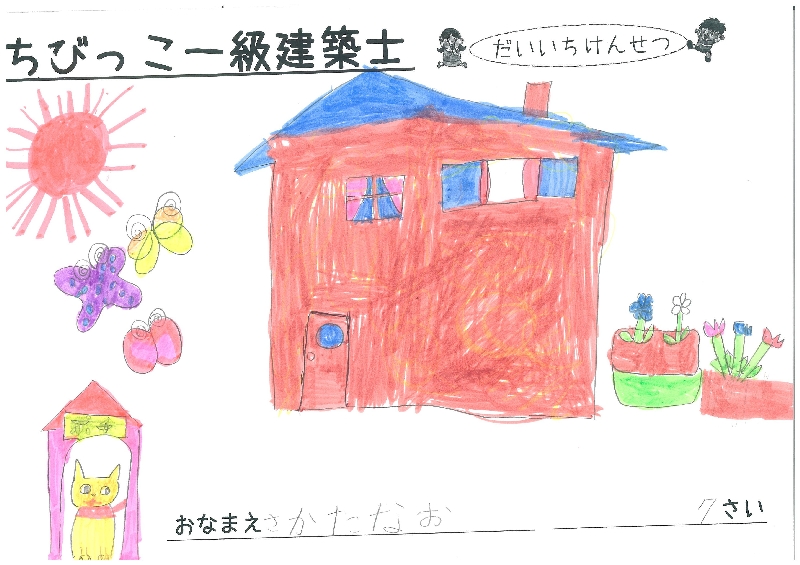 ちびっこ一級建築士
だいいちけんせつ
おなまえ さかたなお 7さい